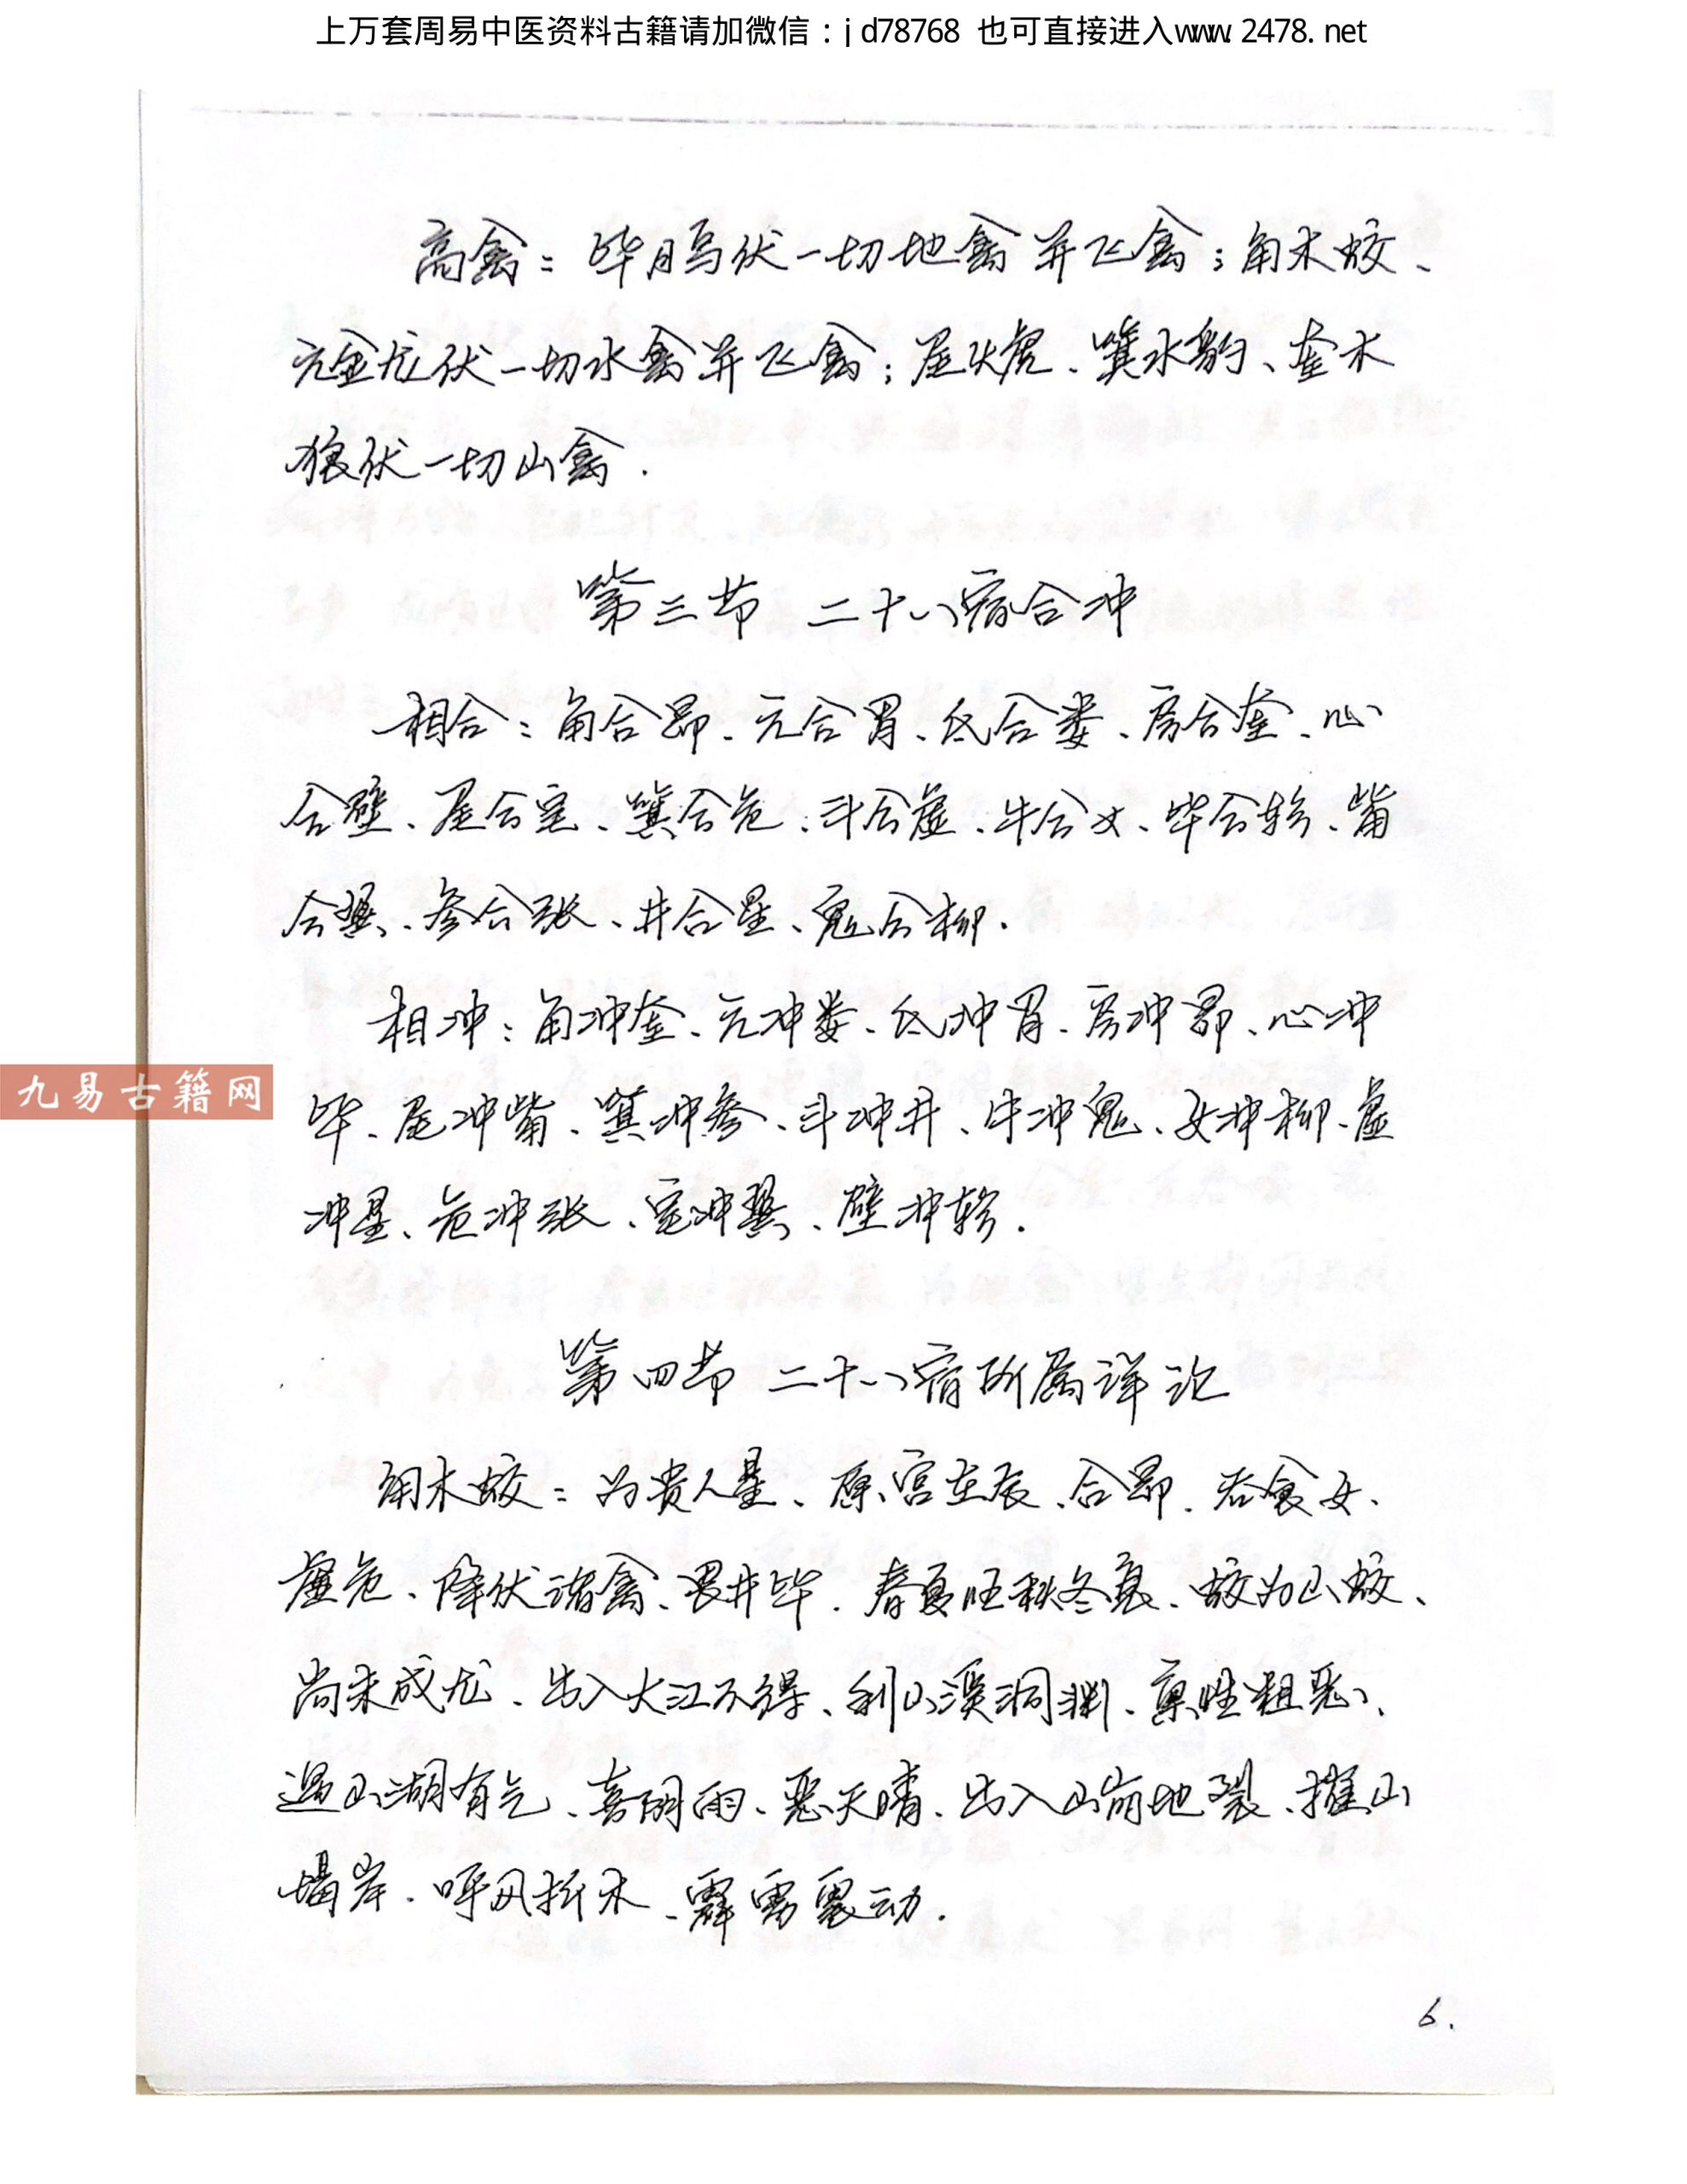 上万套周易中医资料古籍请加微信：jd78768 也可直接进入www.2478.net
高禽：毕月乌伏一切地禽并飞禽；角木蛟、
亢金龙伏一切水禽并飞禽；尾火虎、箕水豹、奎木
狼伏一切山禽.
第三节 二十八宿合冲
相合：角合昴、亢合胃、氐合娄、房合奎、心
合壁、尾合室、箕合危、斗合虚、牛合女、毕合轸、嘴
合翼、参合张、井合星、鬼合柳.
相冲：角冲奎、亢冲娄、氐冲胃、房冲昴、心冲
九易古籍网
毕、尾冲嘴、箕冲参、斗冲井、牛冲鬼、女冲柳、虚
冲星、危冲张、室冲翼、壁冲轸.
第四节 二十八宿所属详论
角木蛟：为贵人星、原宫在辰、合昴、吞食女、
虚危、降伏诸禽、畏井毕. 春夏旺秋冬衰、蛟为山蛟、
尚未成龙、出入大江不得、利山溪洞渊、禀性粗恶、
遇山湖有气、喜阴雨、恶天晴、出入山崩地裂、摧山
塌岸. 呼风折木、霹雳震动.
6.